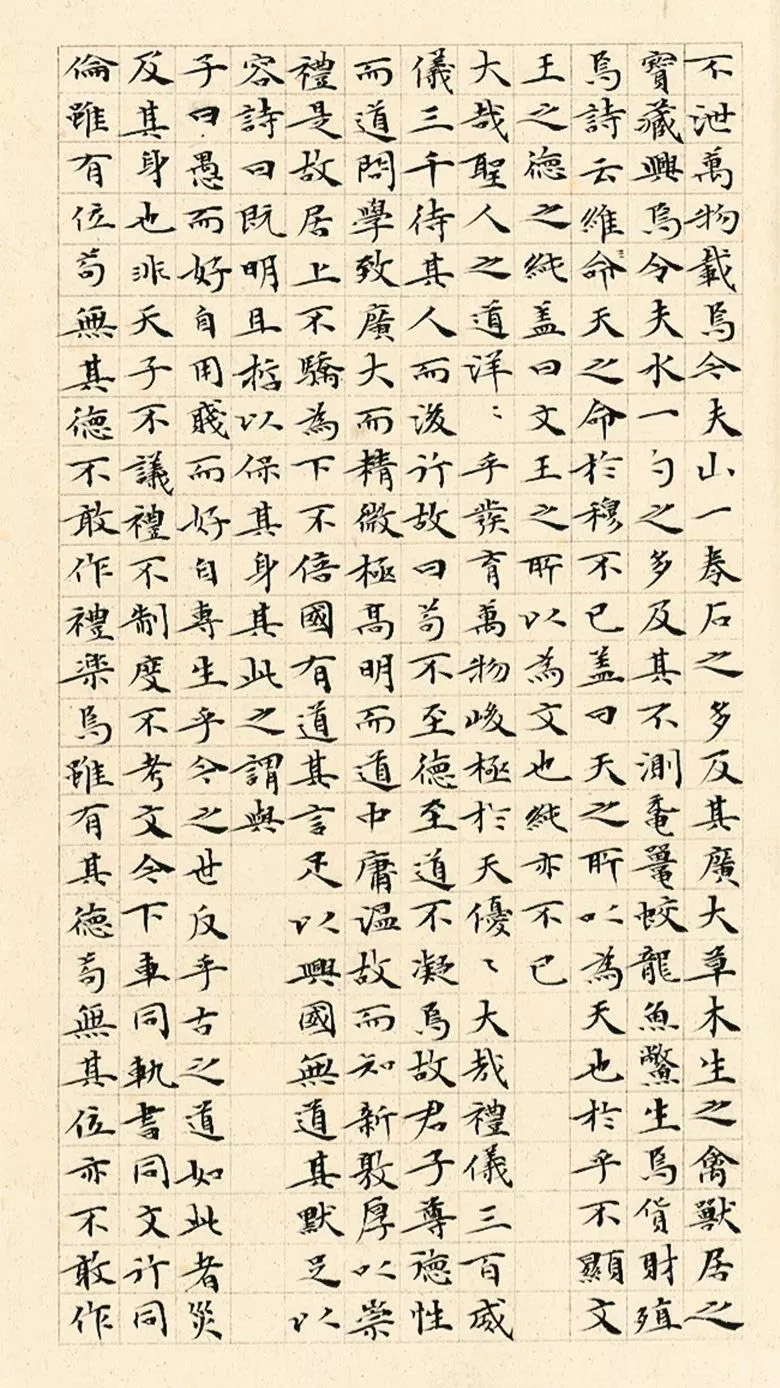 不泄萬物載焉今夫山一拳石之多及其廣大草木生之禽獸居之
寶藏興焉今夫水一勺之多及其不測黿鼉蛟龍魚鱉生焉貨財殖
焉詩云維命天之命於穆不已盖曰天之所以為天也於乎不顯文
王之德之純盖曰文王之所以為文也純亦不已
大哉聖人之道洋〻乎發育萬物峻極於天優〻大哉禮儀三百威
儀三千待其人而後行故曰苟不至德至道不凝焉故君子尊德性
而道問學致廣大而精微極高明而道中庸温故而知新敦厚以崇
禮是故居上不驕為下不倍國有道其言足以興國無道其默足以
容詩曰既明且哲以保其身其此之謂與
子曰愚而好自用賤而好自專生乎今之世反乎古之道如此者災
及其身也非天子不議禮不制度不考文今下車同軌書同文行同
倫雖有位苟無其德不敢作禮楽焉雖有其德苟無其位亦不敢作